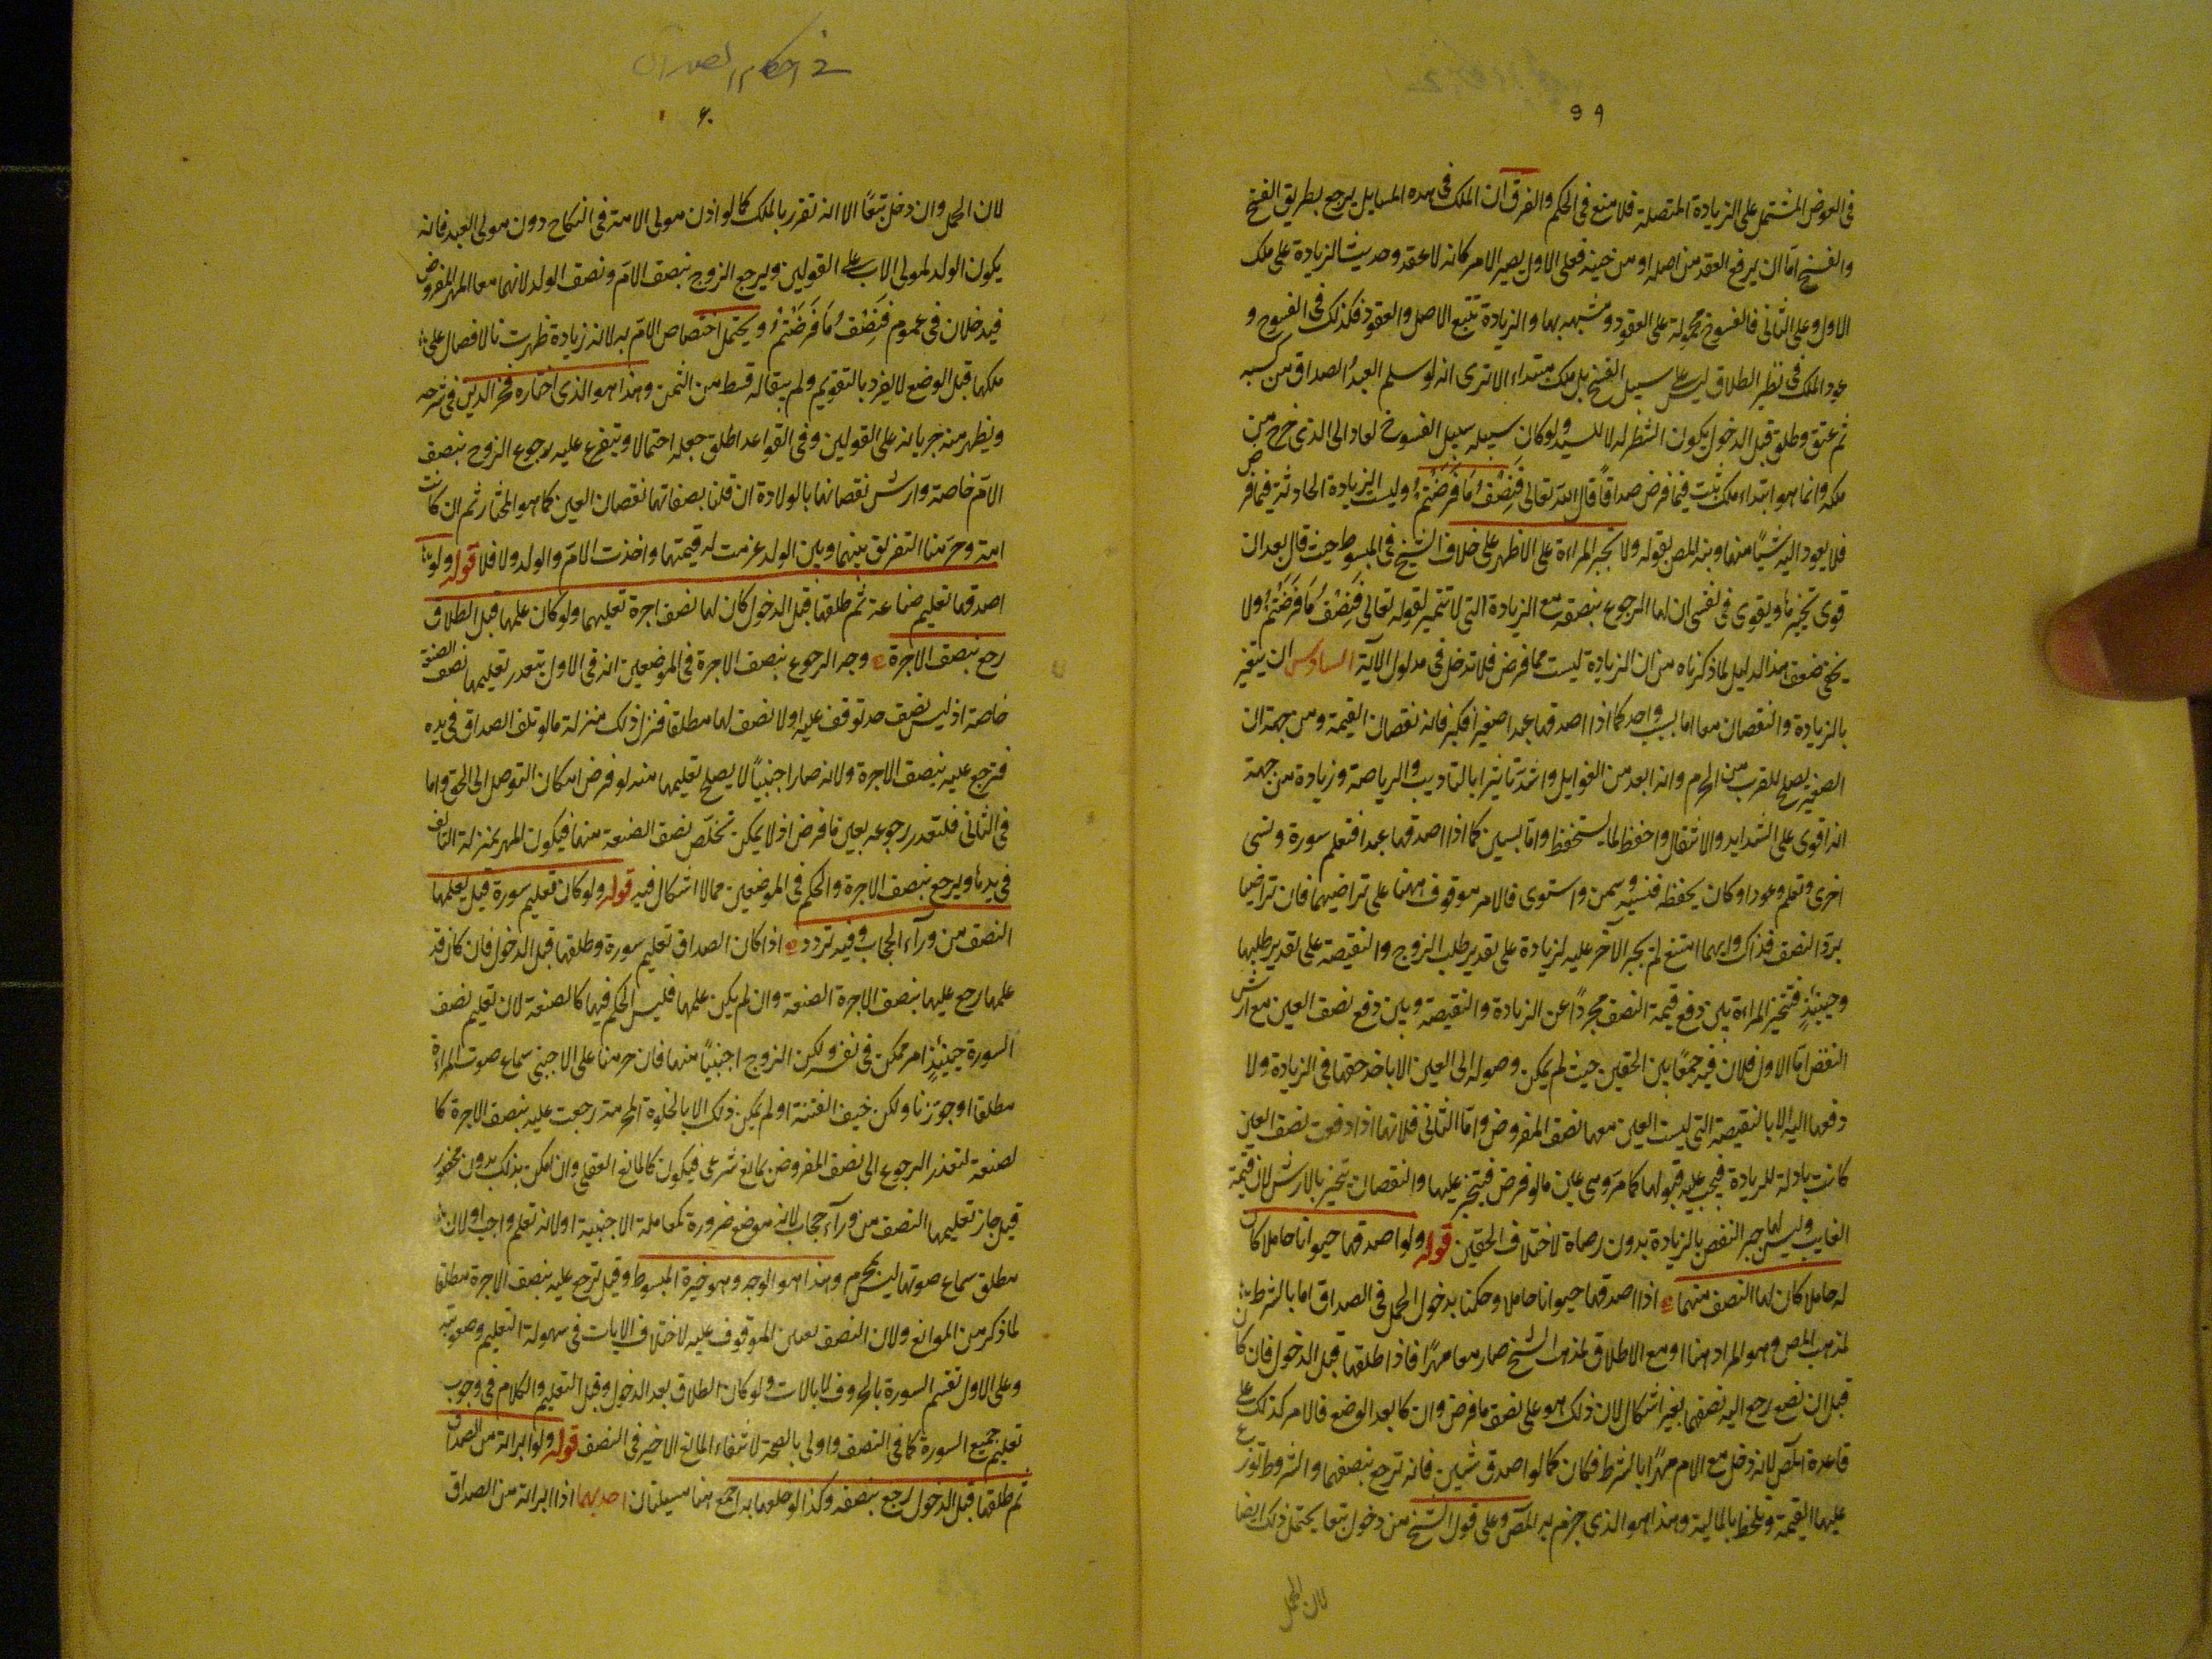 ٥٩
فى العوض المشتمل على الزيادة المتصلة فلا منع فى الحكم والفرق ان الملك فى هذه المسايل يرجع بطريق الفسخ
والفسخ اما ان يرفع العقد من اصله او من حينه فعلى الاول يصير الامر كانه لا عقد وحديث الزيادة على ملك
الاول وعلى الثانى فالفسوخ محمولة على العقود ومشبهه بها والزيادة تتبع الاصل والعقود فكذلك فى الفسوخ و
عود الملك فى تشطير الطلاق ليس على سبيل الفسخ بل ملك مبتداء الا ترى انه لو سلم العبد الصداق من كسبه
ثم عتق وطلق قبل الدخول يكون الشطر له لا للسيد ولو كان سبيله سبيل الفسوخ لعاد الى الذى خرج من
ملكه وانما هو ابتداء ملك ثبت فيما فرض صداقاً قال الله تعالى فَنِصْفُ مَا فَرَضْتُمْ وليست الزيادة الحادثة فيما فرض
فلا يعود اليه شيئاً منها ونبه المص بقوله ولا تجبر المراءة على الاظهر على خلاف الشيخ فى المبسوط حيث قال بعد ان
قوى تخييرها ويقوى فى نفسى ان لها الرجوع بنصفه مع الزيادة التى لا تتميز لقوله تعالى فَنِصْفُ مَا فَرَضْتُمْ ولا
يخفى ضعف هذا الدليل لما ذكرناه من ان الزيادة ليست مما فرض فلا تدخل فى مدلول الآية السادس ان يتغير
بالزيادة والنقصان معا اما بسبب واحد كما اذا اصدقها عبدا صغيرا فكبر فانه نقصان القيمة ومن جهة ان
الصغير يصلح للقرب من الحرم وانه ابعد من الغوايل واشد تاثيرا بالتاديب والرياضة وزيادة من جهة
انه اقوى على الشدايد والاشغال واحفظ لما يستحفظ واما بسببين كما اذا اصدقها عبدا فتعلم سورة ونسى
اخرى وتعلم وعودا وكان يحفظه فنسيه وسمن واستوى فالامر موقوف ههنا على تراضيهما فان تراضيا
برد النصف فذاك وايهما امتنع لم يجبر الآخر عليه لزيادة على تقدير طلب الزوج والنقيصة على تقدير طلبها
وحينئذٍ فتتخير المراءة بين دفع قيمة النصف مجرداً عن الزيادة والنقيصة وبين دفع نصف العين مع ارش
النقص اما الاول فلان فيه جمعاً بين الحقين حيث لم يمكن وصوله الى العين الا باخذ حقها فى الزيادة ولا
دفعها اليه الا بالنقيصة التى ليست العين معها نصف المفروض واما الثانى فلانها اذا دفعت نصف العين
كانت باذلة للزيادة فيجب عليه قبولها كما مر وهى عين مالو فرض فيتخير عليها والنقصان يتخير بالارش لان قيمة
الغايب وليس لها جبر النقص بالزيادة بدون رضاه لاختلاف الحقين قوله ولو اصدقها حيوانا حاملا كان
له حاملا كان لها النصف منهما اذا اصدقها حيوانا حاملا وحكمنا بدخول الحمل فى الصداق اما بالشرط
لمذهب المص وهو المراد هنا او مع الاطلاق لمذهب الشيخ صار معا مهرًا فاذا طلقها قبل الدخول فان كان
قبل ان تضع رجع اليه نصفهما بغير اشكال لان ذلك هو على نصف ما فرض وان كان بعد الوضع فالامر كذلك على
قاعدة المص لانه دخل مع الام مهرًا بالشرط فكان كما لو اصدق شيئين فانه ترجع بنصفهما والشروط توزع
عليها القيمة وتلحظ بالمالية وهذا هو الذى جزم به المص وعلى قول الشيخ من دخوله تبعا يحتمل ذلك ايضا
لان الحمل
فى احكام الصداق
٦٠
لان الحمل وان دخل تبعًا الا انه تقرر بالملك كما لو اذن مولى الامة فى النكاح دون مولى العبد فانه
يكون الولد لمولى الاب على القولين ويرجع الزوج بنصف الام ونصف الولد لانهما معا المهر المفروض
فيدخلان فى عموم فَنِصْفُ مَا فَرَضْتُمْ ويحتمل اختصاص الام به لانه زيادة ظهرت بالانفصال على
ملكها قبل الوضع لا يفرد بالتقويم ولم يقابله قسط من الثمن وهذا هو الذى اختاره فخر الدين فى شرحه
ويظهر منه جريانه على القولين وفى القواعد اطلق جعله احتمالا ويتفرع عليه رجوع الزوج بنصف
الام خاصة وارش نقصانها بالولادة ان قلنا بصفاتها نقصان العين كما هو المختار ثم ان كانت
امة وحرمنا التفريق بينهما وبين الولد غرمت له قيمتها واخذت الام والولد ولا فلا قوله ولو
اصدقها تعليم صناعة ثم طلقها قبل الدخول كان لها نصف اجرة تعليمها ولو كان علمها قبل الطلاق
رجع بنصف الاجرة وجه الرجوع بنصف الاجرة فى الموضعين انه فى الاول يتعذر تعليمها نصف الصنعة
خاصة اذ ليس نصف حد توقف عليه او لا نصف لها مطلقا فنزل ذلك منزلة مالو تلف الصداق فى يده
فترجع عليه بنصف الاجرة ولانه صار اجنبياً لا يصلح تعليمها منه لو فرض امكان التوصل الى الحق واما
فى الثانى فلتعذر رجوعه بعين ما فرض اذ لا يمكن تخلص نصف الصنعة منها فيكون المهر بمنزلة التالف
فى يدها ويرجع بنصف الاجرة والحكم فى الموضعين مما لا اشكال فيه قوله ولو كان تعليم سورة قيل يعلمها
النصف من ورآء الحجاب وفيه تردد اذا كان الصداق تعليم سورة وطلقها قبل الدخول فان كان قد
علمها رجع عليها بنصف الاجرة الصنعة وان لم يكن علمها فليس الحكم فيها كالصنعة لان تعليم نصف
السورة حينئذٍ امر ممكن فى نفسه ولكن الزوج اجنبياً منها فان حرمنا على الاجنبى سماع صوت المراءة
مطلقا او جوزنا ولكن خيف الفتنة او لم يمكن ذلك الا بالخلوة المحرمة رجعت عليه بنصف الاجرة كا
لصنعة لتعذر الرجوع الى نصف المفروض بمانع شرعى فيكون كالمانع العقلى وان امكن بذلك بدون محذور
قيل جاز تعليمها النصف من ورآء حجاب لانه موضع ضرورة كمعاملة الاجنبية او لانه تعلم واجب او لان
مطلق سماع صوتها ليس بمحرم وهذا هو الوجه وهو خيرة المبسوط وقيل ترجع عليه بنصف الاجرة مطلقا
لما ذكر من الموانع ولان النصف يعسر الوقوف عليه لاختلاف الايات فى سهولة التعليم وصعوبته
وعلى الاول تقسم السورة بالحروف لا بالايات ولو كان الطلاق بعد الدخول وقبل التعليم والكلام فى وجوب
تعليم جميع السورة كما فى النصف واولى بالصحة لانتفاء المانع الاخير فى النصف قوله ولو ابراته من الصداق
ثم طلقها قبل الدخول رجع بنصفه وكذا لو خلعها به اجمع هنا مسئلتان احديهما اذا ابراته من الصداق